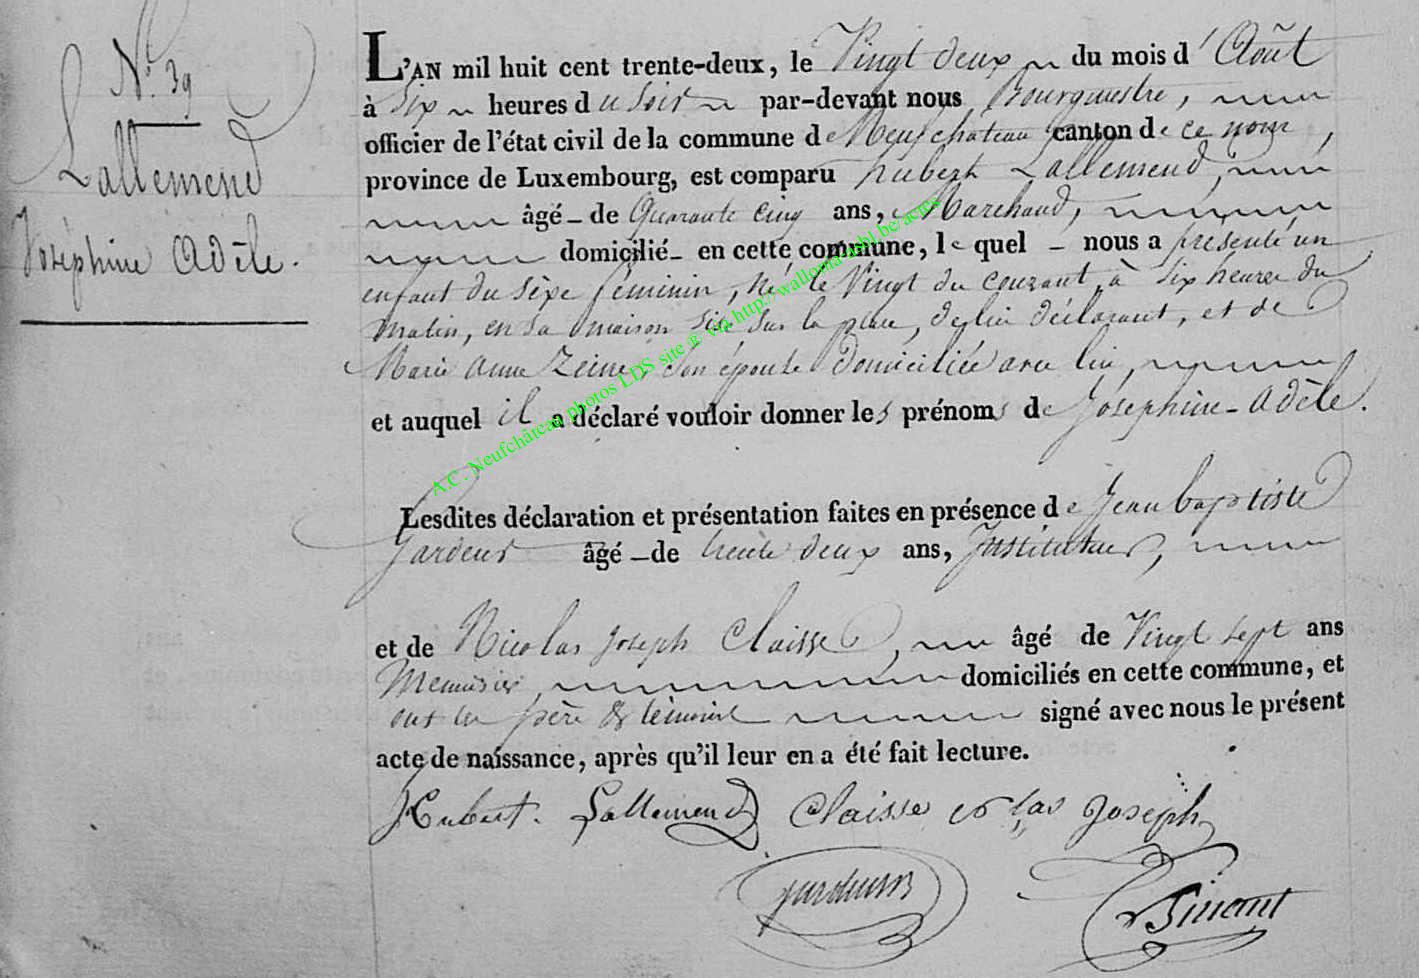 N.º 39
Lallemend
Joséphine Adèle.
L'AN mil huit cent trente-deux, le Vingt deux du mois d'Août
à Six heures du soir par-devant nous Bourgmestre,
officier de l'état civil de la commune de Neufchâteau canton de ce nom,
province de Luxembourg, est comparu hubert Lallemend,
âgé de Quarante Cinq ans, Marchand,
domicilié en cette commune, le quel nous a présenté un
enfant du sèxe féminin, né le Vingt du courant, à six heures du
matin, en sa maison sise sur la place, de lui déclarant, et de
Marie Anne Zeine, son épouse domiciliée avec lui,
et auquel il a déclaré vouloir donner les prénoms de Joséphine-Adèle.
Lesdites déclaration et présentation faites en présence de Jean baptiste
Jardeur âgé de trente deux ans, Instituteur,
et de Nicolas Joseph Claisse, âgé de Vingt sept ans
Menuisier, domiciliés en cette commune, et
ont les père & témoins signé avec nous le présent
acte de naissance, après qu'il leur en a été fait lecture.
Hubert. Lallemend Claisse colas Joseph
A.C. Neufchâteau photos LDS site @ via http://wallonia-asbl.be/actes